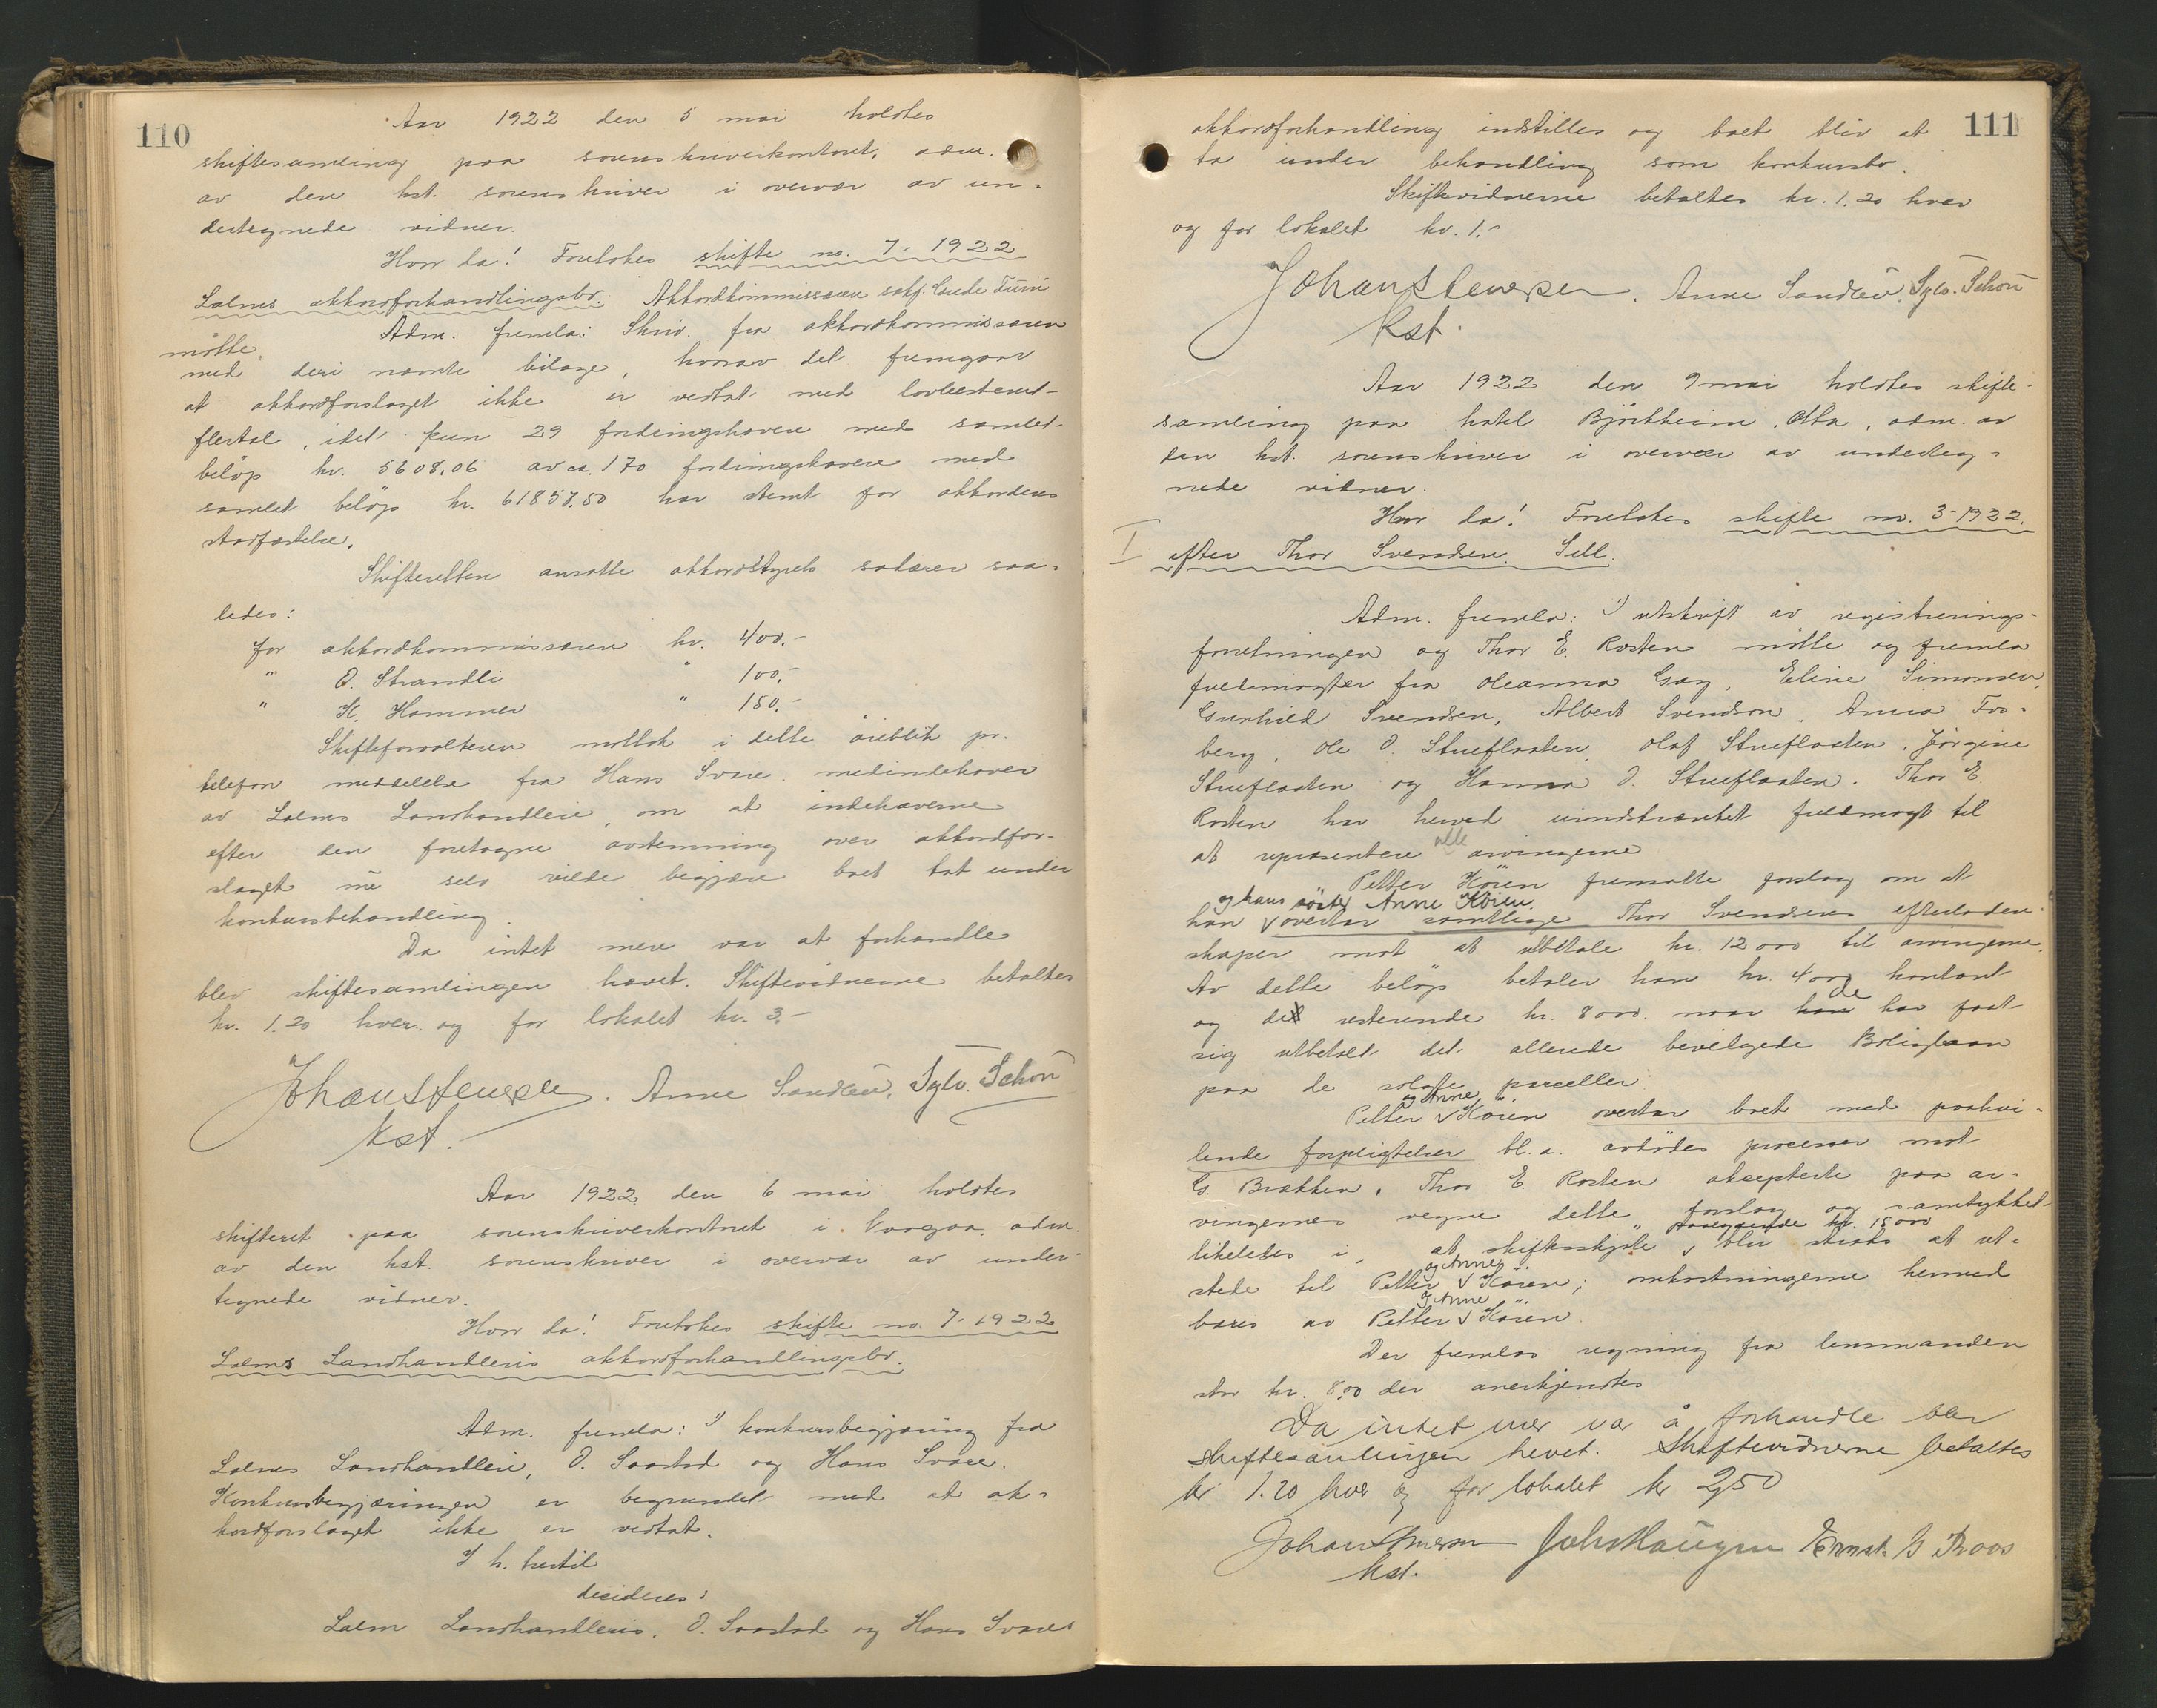 110
Aar 1922 den 5 mai holdtes
skiftesamling paa sorenskriverkontoret, adm.
av den kst. sorenskriver i overvær av un-
dertegnede vidner.
Hvor da! Foretokes skifte no. 7-1922
Lalms akkordforhandlingsbo. Akkordkommissæren sakf.
møtte.
Adm. fremla: Skriv. fra akkordkommissæren
med deri nævnte bilage, hvorav det fremgaar
at akkordforslaget ikke er vedtat med lovbestemt
flertal, idet kun 29 fordringshavere med samlet
beløp kr. 5608,06 av ca. 170 fordringshavere med
samlet beløp kr. 61857,50 har stemt for akkordens
stadfæstelse.
Skifteretten ansatte akkordstyrets salærer saa-
ledes:
for akkordkommissæren kr. 400,-
" O. Strandli " 100,-
" K. Hammer " 150,-
Skifteforvalteren mottok i dette øieblik pr.
telefon meddelelse fra Hans Svare, medindehaver
av Lalms Landhandleri, om at indehaverne
efter den foretagne avstemning over akkordfor-
slaget nu selv vilde begjære boet tat under
konkursbehandling.
Da intet mere var at forhandle
blev skiftesamlingen hævet. Skiftevidnerne betaltes
kr. 1.20 hver og for lokalet kr. 3,-
Johan Stenersen. Anne Sandbu, Sylv. Schou
kst.
Aar 1922 den 6 mai holdtes
skifteret paa sorenskriverkontoret i Vaagaa, adm.
av den kst. sorenskriver i overvær av under-
tegnede vidner.
Hvor da! Foretokes skifte no. 7-1922
Lalms Landhandleris akkordforhandlingsbo.
Adm. fremla: 1) konkursbegjæring fra
Lalms Landhandleri, O. Saastad og Hans Svare.
Konkursbegjæringen er begrundet med at ak-
kordforslaget ikke er vedtat.
I h. hertil
decideres:
Lalm Landhandleris, O. Saastad og Hans Svares
111
akkordforhandling indstilles og boet bliv at
ta under behandling som konkursbo.
Skiftevidnerne betaltes kr. 1.20 hver
og for lokalet kr. 1.-
Johan Stenersen. Anne Sandbu, Sylv. Schou
kst.
Aar 1922 den 9 mai holdtes skifte-
samling paa hotel Bjørkheim, Otta, adm. av
den kst. sorenskriver i overvær av underteg-
nede vidner.
Hvor da! Foretokes skifte no. 3-1922.
I efter Thor Svendsen Sell.
Adm. fremla: 1) utskrift av registrerings-
forretningen og Thor E. Rosten møtte og fremla
fuldmagter fra Oleanna Gay, Eline Simonsen,
Gunhild Svendsen, Albert Svendson, Anna Fos-
berg, Ole O. Stueflaaten, Olaf Stueflaaten, Jørgine
Stueflaaten og Hanna O. Stueflaaten. Thor E.
Rosten har herved uindskrænket fuldmagt til
at repræsentere alle arvingerne
Petter Køien fremsatte forslag om at
og hans søster Anne Køien
han v overtar samtlige Thor Svendsens efterladen-
skaper mot at utbetale kr. 12000 til arvingerne.
Av dette beløp betaler han kr. 4000 kontant
og de resterende kr. 8000. naar de har faat
sig utbetalt det allerede bevilgede Boliglaan
paa de solgte parceller.
og Anne
Petter v Køien overtar boet med paahvi-
lende forpligtelser bl. a. avdødes processer mot
G. Brækken. Thor E. Rosten aksepterte paa ar-
vingernes vegne dette forslag og samtykket
likeledes i, at skifteskjøte v paalydende kr. 15000 blir straks at ut-
og Anne
stede til Petter v Køien; omkostningerne hermed
og Anne
bæres av Petter v Køien.
Der fremlas regning fra lensmanden
stor kr. 8,00 der anerkjendtes
Da intet mer var å forhandle blev
skiftesamlingen hevet. Skiftevidnerne betaltes
kr 1.20 hver og for lokalet kr 2,50
Johan Stenersen Joh Haugen Ernst B Roos
kst.